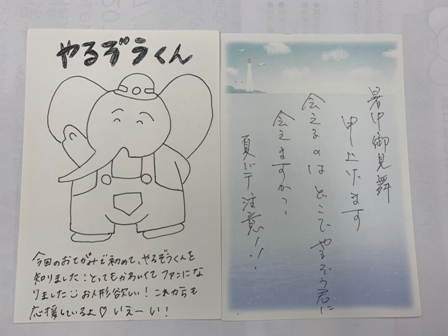 やるぞうくん
今回のおてがみで初めて、やるぞうくんを
知りました！とってもかわいくてファンにな
りました お人形欲しい！これからも
応援しているよ♡いえーい！
暑中御見舞
申上げます
会えるのはどこで やるぞう君に
会えますか？
夏バテ注意！！